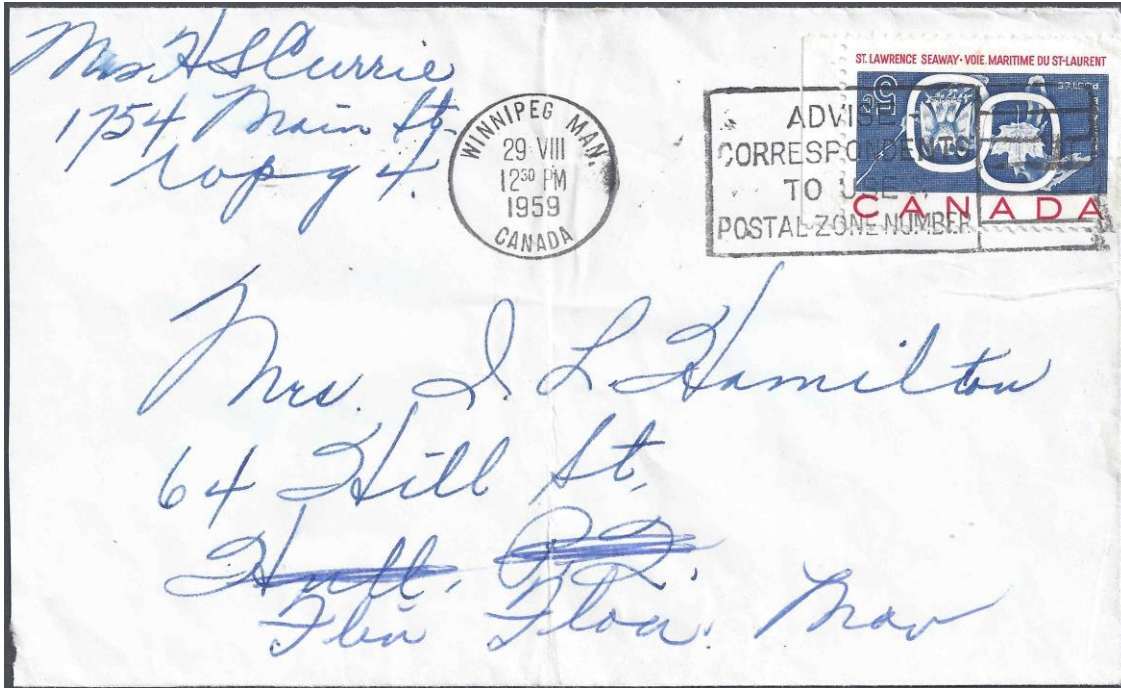 Mrs. H S Currie
1754 Main St.
Wpg 4.
WINNIPEG MAN.
29 VIII
12³⁰ PM
1959
CANADA
ADVISE
CORRESPONDENTS
TO USE
POSTAL ZONE NUMBER
ST. LAWRENCE SEAWAY·VOIE MARITIME DU ST-LAURENT
5¢
CANADA
Mrs. I. L. Hamilton
64 Hill St,
Hull, P.Q.
Flin Flon, Man